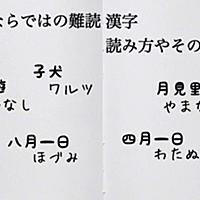 ならではの難読
子犬
ワルツ
遊
なし
八月一日
ほづみ
漢字
読み方やその
月見里
やまな
四月一日
わたぬ